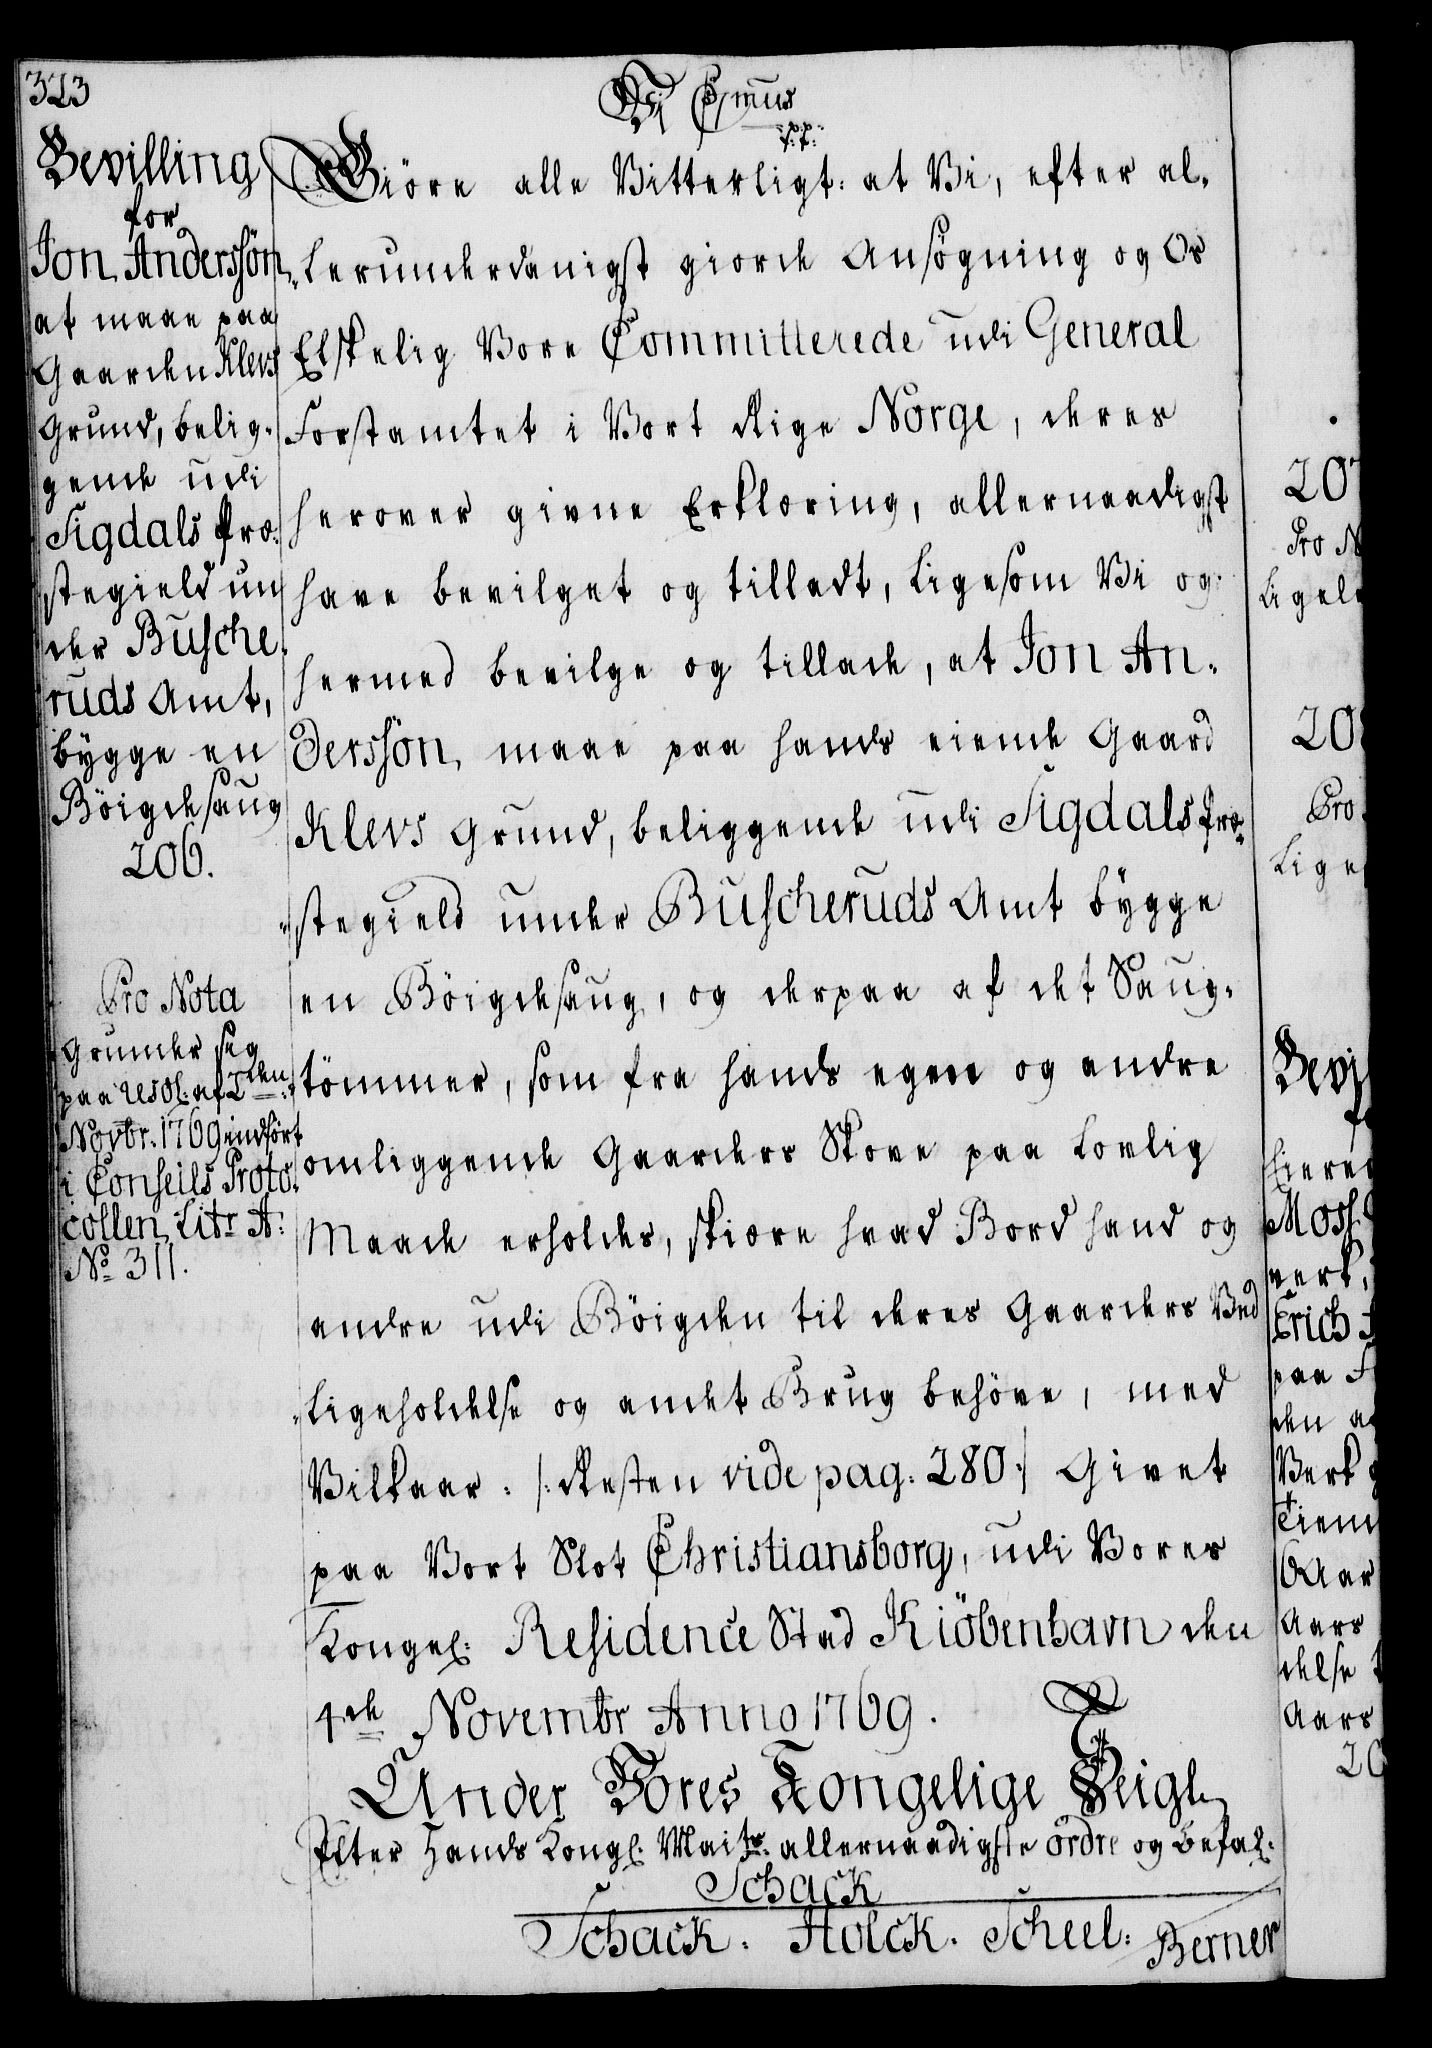 323
Vi C7mus
p:p:
Bevilling
for
Jon Andersøn
at maae paa
Gaarden Klevs
Grund, belig-
gende udi
Sigdals Præ-
stegield un
der Busche-
ruds Amt,
bygge en
Böigdesaug
206.
Pro Nota
Grunder sig
paa resol: af 2den
Novbr. 1769 indført
i Conseils Proto-
collen Litr A:
No 311.
Giöre alle Vitterligt: at Vi, efter al-
lerunderdanigst giorde Ansøgning og Os
Elskelig Vore Committerede udi General
Forstamtet i Vort Rige Norge, deres
herover givne Erklæring, allernaadigst
have bevilget og tilladt, ligesom Vi og
hermed bevilge og tillade, at Jon An-
derssön, maae paa hands eiende Gaard
Klevs Grund, beliggende udi Sigdals Præ-
stegield under Buscheruds Amt bygge
en Böigdesaug, og derpaa af det Saug-
tömmer, som fra hands egne og andre
omliggende Gaarders Skove paa lovlig
Maade erholdes, skiære hvad Bord hand og
andre udi Böigden til deres Gaarders Ved
ligeholdelse og andet Brug behöve, med
Vilkaar. /: Resten vide pag: 280 :/ Givet
paa Vort Slot Christiansborg, udi Vores
Kongel: Residence Stad Kiöbenhavn den
4de Novembr Anno 1769.
Under Vores Kongelige Seigl
Efter Hands Kongl: Maits allernaadigste ordre og befal:
Schack
Schack. Holck. Scheel. Berner
207
Pro N
Ligele
20
Pro
Lige
Bevi
Eiere
Moss
verk,
Erich
paa F
den a
Verk
Tiem
6 Aar
Aars
delse
Aars
20